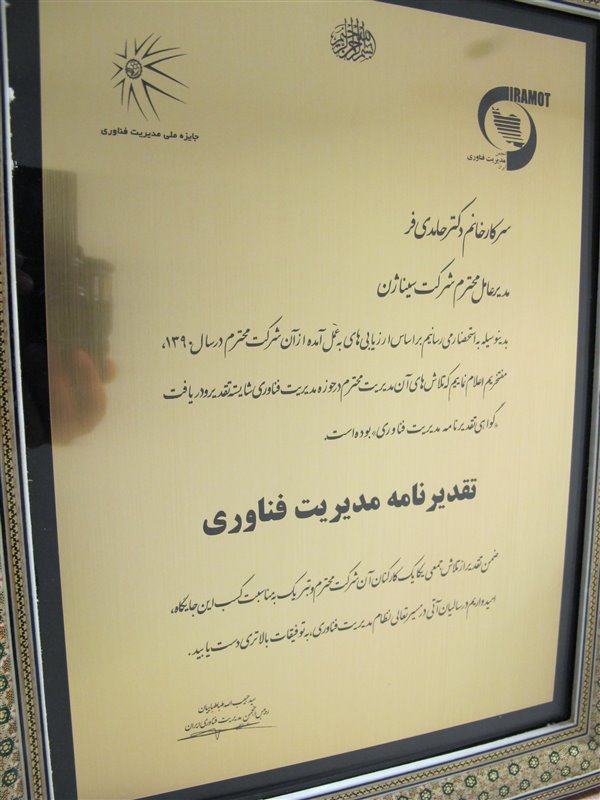 جایزه ملی مدیریت فناوری
IRAMOT
انجمن
مدیریت فناوری
ایران
سرکار خانم دکتر حامدی فر
مدیر عامل محترم شرکت سیناژن
بدینوسیله به استحضار می رسانیم بر اساس ارزیابی های به عمل آمده از آن شرکت محترم در سال ۱۳۹۰،
مفتخریم اعلام نماییم که تلاش های آن مدیریت محترم در حوزه مدیریت فناوری شایسته تقدیر و دریافت
«گواهی تقدیرنامه مدیریت فناوری» بوده است.
تقدیرنامه مدیریت فناوری
ضمن تقدیر از تلاش جمعی یکایک کارکنان آن شرکت محترم و تبریک به مناسبت کسب این جایگاه،
امیدواریم در سالیان آتی در مسیر تعالی نظام مدیریت فناوری، به توفیقات بالاتری دست یابید.
سید حبیب الله طباطباییان
رئیس انجمن مدیریت فناوری ایران